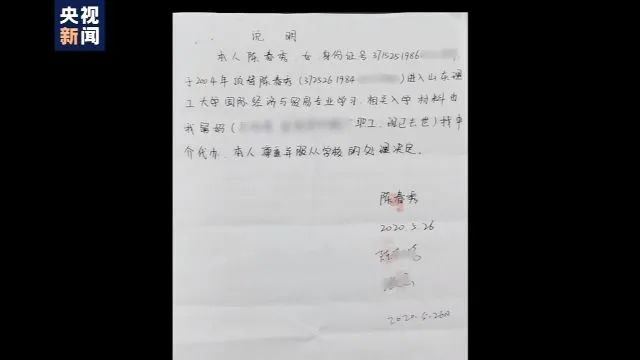 央视
新闻
说 明
本人陈春秀,女,身份证号3715251986
于2004年顶替陈春秀(3725261984 )进入山东理
工大学国际经济与贸易专业学习,相关入学材料由
我舅妈( 职工,现已去世)找中
介代办,本人尊重并服从学校的处理决定。
陈春秀
2020.5.26
2020.5.26日